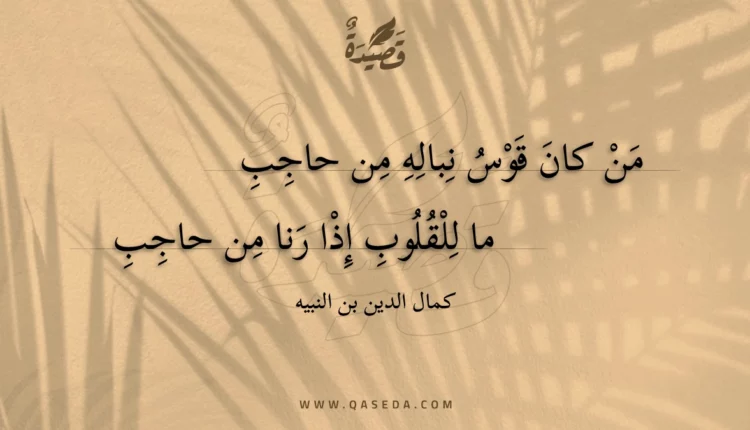 قَصِيْدَةٌ
مَنْ كانَ قَوْسُ نِبالِهِ مِن حاجِبِ
ما لِلْقُلُوبِ إِذْا رَنا مِن حاجِبِ
كمال الدين بن النبيه
WWW.QASEDA.COM